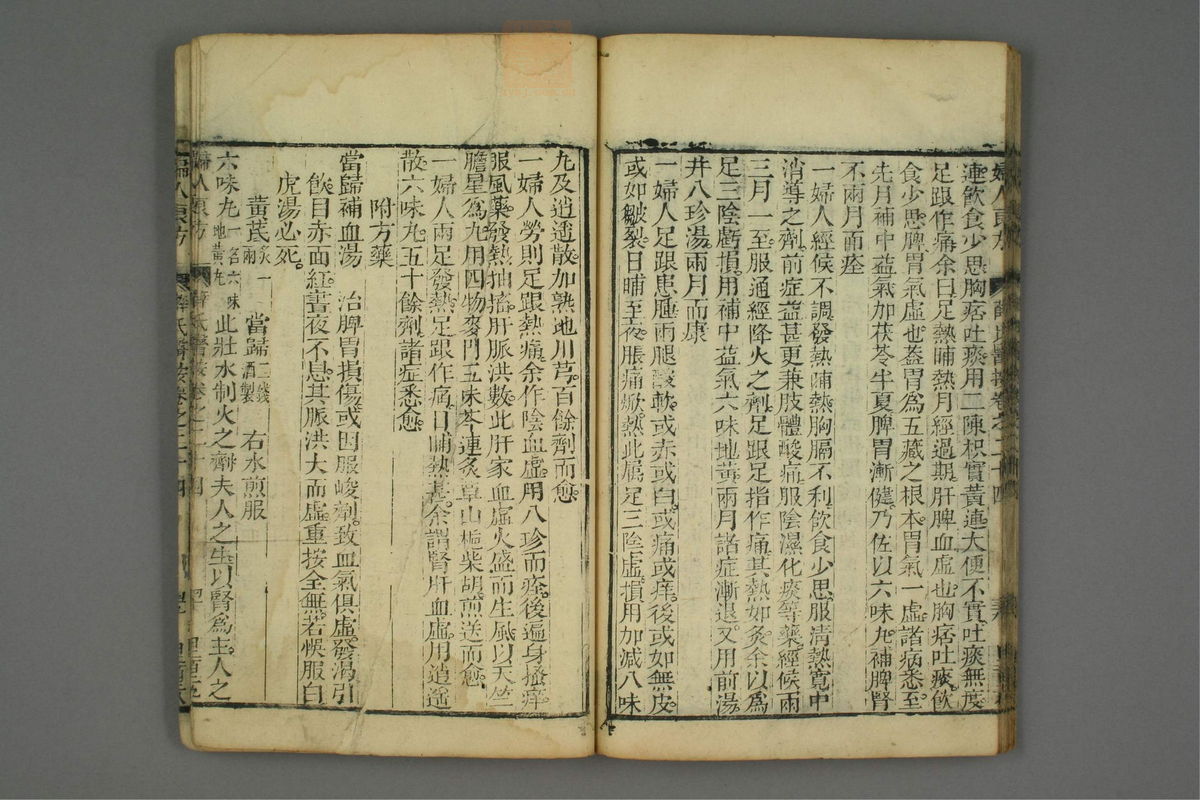 連飲食少思胸痞吐痰用二陳枳實黃連大便不實吐痰無度
足跟作痛余曰足熱晡熱月經過期肝脾血虛也胸痞吐痰飲
食少思脾胃氣虛也蓋胃為五藏之根本胃氣一虛諸病悉至
先用補中益氣加茯苓半夏脾胃漸健乃佐以六味丸補脾腎
不兩月而痊
一婦人經候不調發熱晡熱胸膈不利飲食少思服清熱寬中
消導之劑前症益甚更兼肢體酸痛服除濕化痰等藥經候兩
三月一至服通經降火之劑足跟足指作痛其熱如炙余以為
足三陰虧損用補中益氣六味地黃兩月諸症漸退又用前湯
井八珍湯兩月而康
一婦人足跟患腫兩腿酸軟或赤或白或痛或痒後或如無皮
或如皺裂日晡至夜脹痛焮熱此屬足三陰虛損用加減八味
丸及逍遙散加熟地川芎百餘劑而愈
一婦人勞則足跟熱痛余作陰血虛用八珍而痊後遍身搔痒
服風藥發熱抽搐肝脈洪數此肝家血虛火盛而生風以天竺
膽星為丸用四物麥門五味芩連炙草山梔柴胡煎送而愈
一婦人兩足發熱足跟作痛日晡熱甚余謂腎肝血虛用逍遙
散六味丸五十餘劑諸症悉愈
附方藥
當歸補血湯 治脾胃損傷或因服峻劑致血氣俱虛發渴引
飲目赤而紅晝夜不息其脈洪大而虛重按全無若悞服白
虎湯必死
黃芪炙一兩 當歸二錢酒製 右水煎服
六味丸一名六味地黃丸 此壯水制火之劑夫人之生以腎為主人之